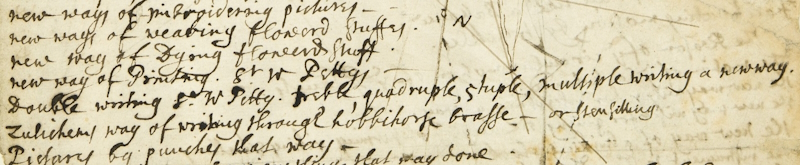 new ways of Imbroidering pictures -
new ways of weaving flowerd stuffes.
new way of Dying flowerd stuff.
new way of Printing. Sr W Pettys -
Double writing Sr. W Petty. treble, quadruple, 5tuple, multiple writing a new way.
Zulichems way of writing through hobbihorse brasse - or stensilling
Pictures by punches that way -
that way done